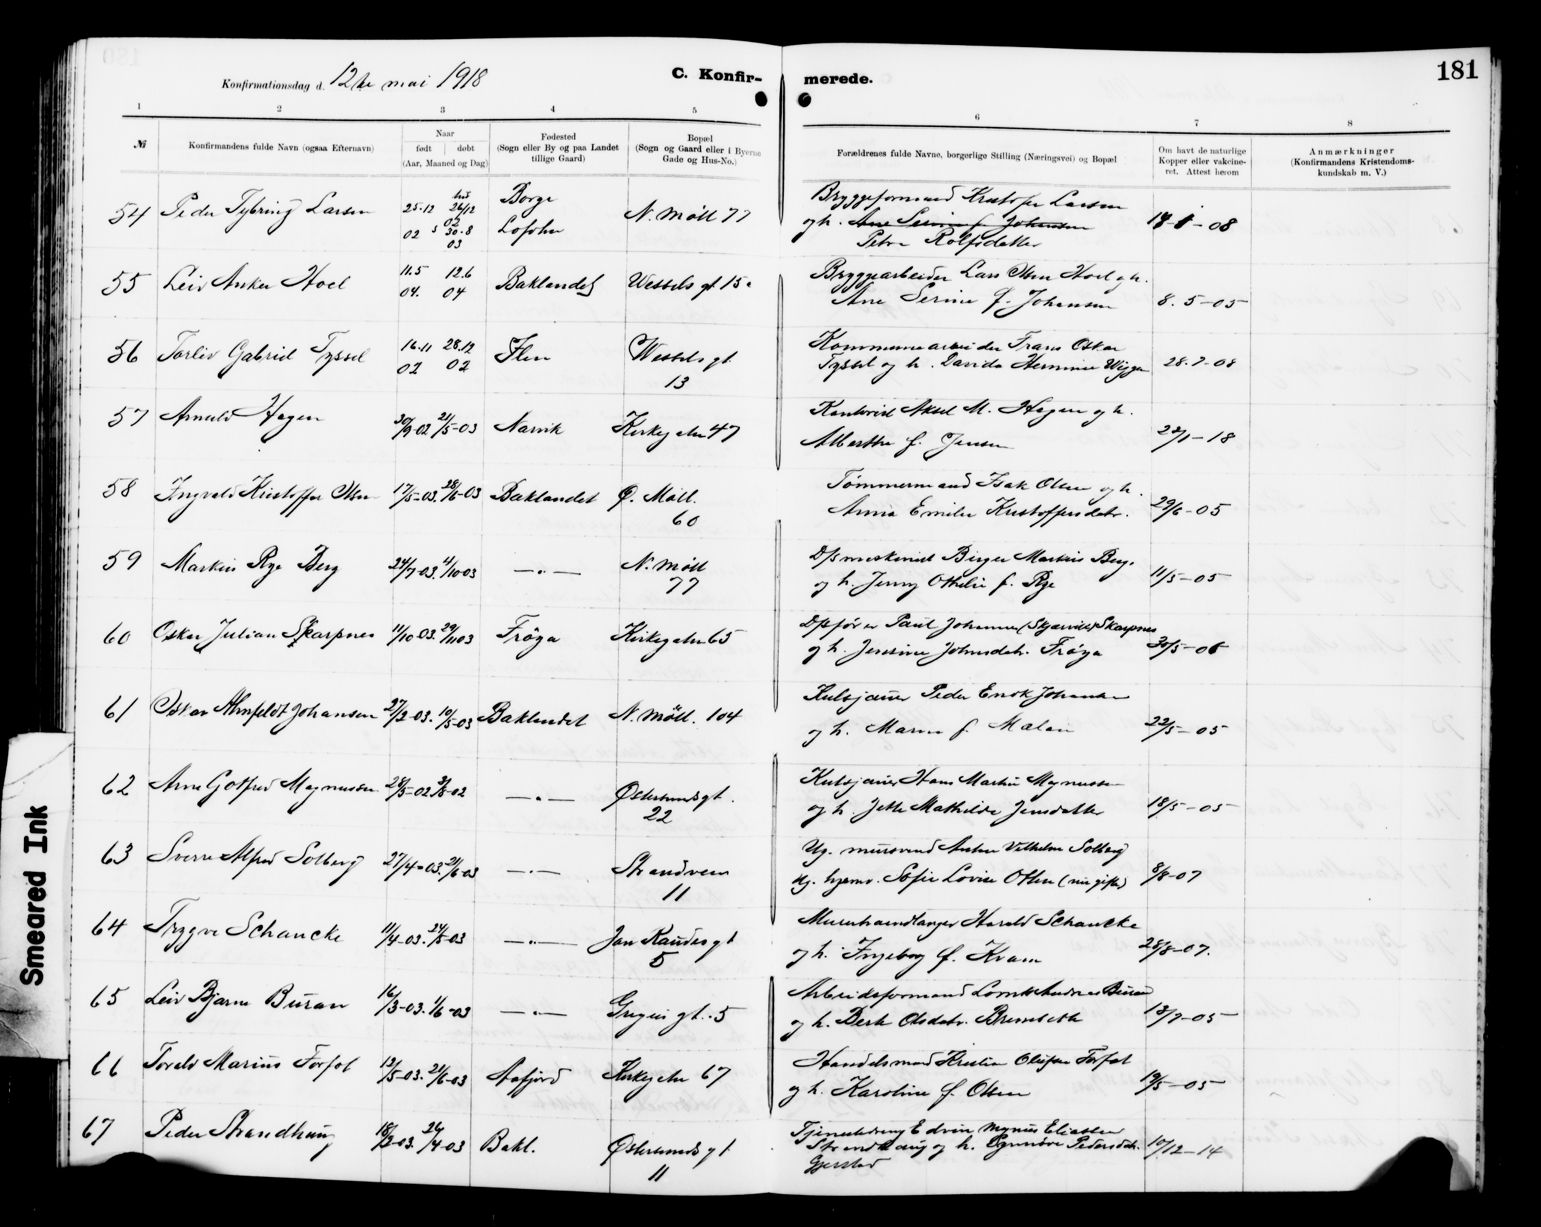 181
Konfirmationsdag d. 12te mai 1918
C. Konfir- merede.
1 2 3 4 5 6 7 8
№
Konfirmandens fulde Navn (ogsaa Efternavn)
Naar
født døbt
(Aar, Maaned og Dag)
Fødested
(Sogn eller By og paa Landet
tillige Gaard)
Bopæl
(Sogn og Gaard eller i Byerne
Gade og Hus-No.)
Forældrenes fulde Navne, borgerlige Stilling (Næringsvei) og Bopæl
Om havt de naturlige
Kopper eller vakcine-
ret. Attest herom
Anmærkninger
(Konfirmandens Kristendoms-
kundskab m. V.)
54 Peder Tybring Larsen 25-12 02 26/12 02 30-8 03 Borge Lofoten N. Møll 77
Bryggeformand Kristofer Larsen
og h. Ane Serine f. Johansen
Petra Rolfsdatter 08
55 Leiv Anker Hoel 11.5 04. 12.6 04 Baklandet Wessels gt 15
Bryggearbeider Lars Olsen Hoel og h.
Ane Serine f. Johansen 8. 5-05
56 Torleiv Gabriel Tyssel 16-11 02 28.12 02 Ilen Wessels gt 13
Kommunearbeider Frans Oskar
Tyssel og h. Davida Hermine Wiggen 28-7-08
57 Arnold Hagen 30/9-02 21/5-03 Narvik Kirkegaten 47
Kontorist Aksel M. Hagen og h.
Albertha f. Jensen 22/1-18
58 Ingvald Kristoffer Olsen 17/5-03. 28/6-03 Baklandet Ø. Møll. 60
Tømmermand Isak Olsen og h.
Anna Emilie Kristoffersdatr. 29/6-05
59 Markus Rye Berg 24/7-03. 4/10-03 —〃— N. Møll 77
D/s maskinist Birger Markus Berg.
og h. Jenny Othelie f. Rye 11/5-05
60 Oskar Julian Skarpnes 11/10-03. 29/11 03 Frøya Kirkegaten 65
Dpfører Paul Johannes Skarpnes
og h. Jensine Johnsdatr. Frøya 30/5-06
61 Oskar Armfeldt Johansen 27/2-03. 10/5-03 Baklandet N. Møll. 104
Kulsjauer Peder Enok Johansen
og h. Marna f. Malan 22/5-05
62 Arne Gotfred Magnussen 28/5-02 3/8-02 —〃— Østersunds gt. 22
Kulsjauer Hans Martin Magnussen
og h. Jette Mathilde Jensdatter 18/5-05
63 Sverre Alfred Solberg 27/4-03. 21/6-03 —〃— Strandveien 11
Ug. mursvend Anton Vilhelm Solberg
ug. hjemv. Sofie Lovise Olsen (nu gifte) 8/8-07
64 Trygve Schancke 11/4-03. 24/5-03 —〃— Jon Raudes gt 5
Murerhaandlanger Harald Schancke
og h. Ingeborg f. Kvam 28/8-07.
65 Leiv Bjarne Buran 16/3-03. 1/6-03 —〃— Gregus gt. 5
Arbeidsformand Lorents Andreas Buran
og h. Berit Olsdatr. Bremseth 13/7-05
66 Torald Marius Forfot 12/5-03. 21/6-03 Aafjord Kirkegaten 67
Handelsmand Kristian Olufsen Forfot
og h. Karoline f. Olsen 19/5-05
67 Peder Strandhaug 18/2-03. 26/4-03 Bakl. Østersunds gt 11
Tjenestedreng Edvin Magnus Eliassen
Strandhaug og h. Gunnøre Pedersdatr.
Gjerstad 10/12-14
Smeared Ink